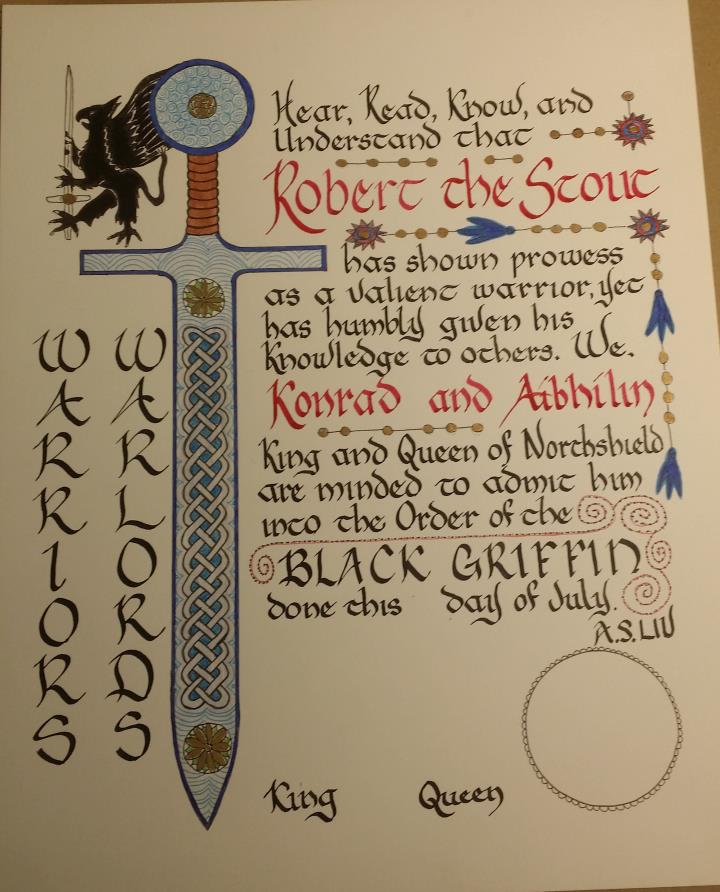 Hear, Read, Know, and
Understand that
Robert the Stout
has shown prowess
as a valient warrior, yet
has humbly given his
knowledge to others. We,
Konrad and Aibhilin
King and Queen of Northshield
are minded to admit him
into the Order of the
BLACK GRIFFIN
done this day of July.
A.S. LIV
WARRIORS
WARLORDS
King Queen